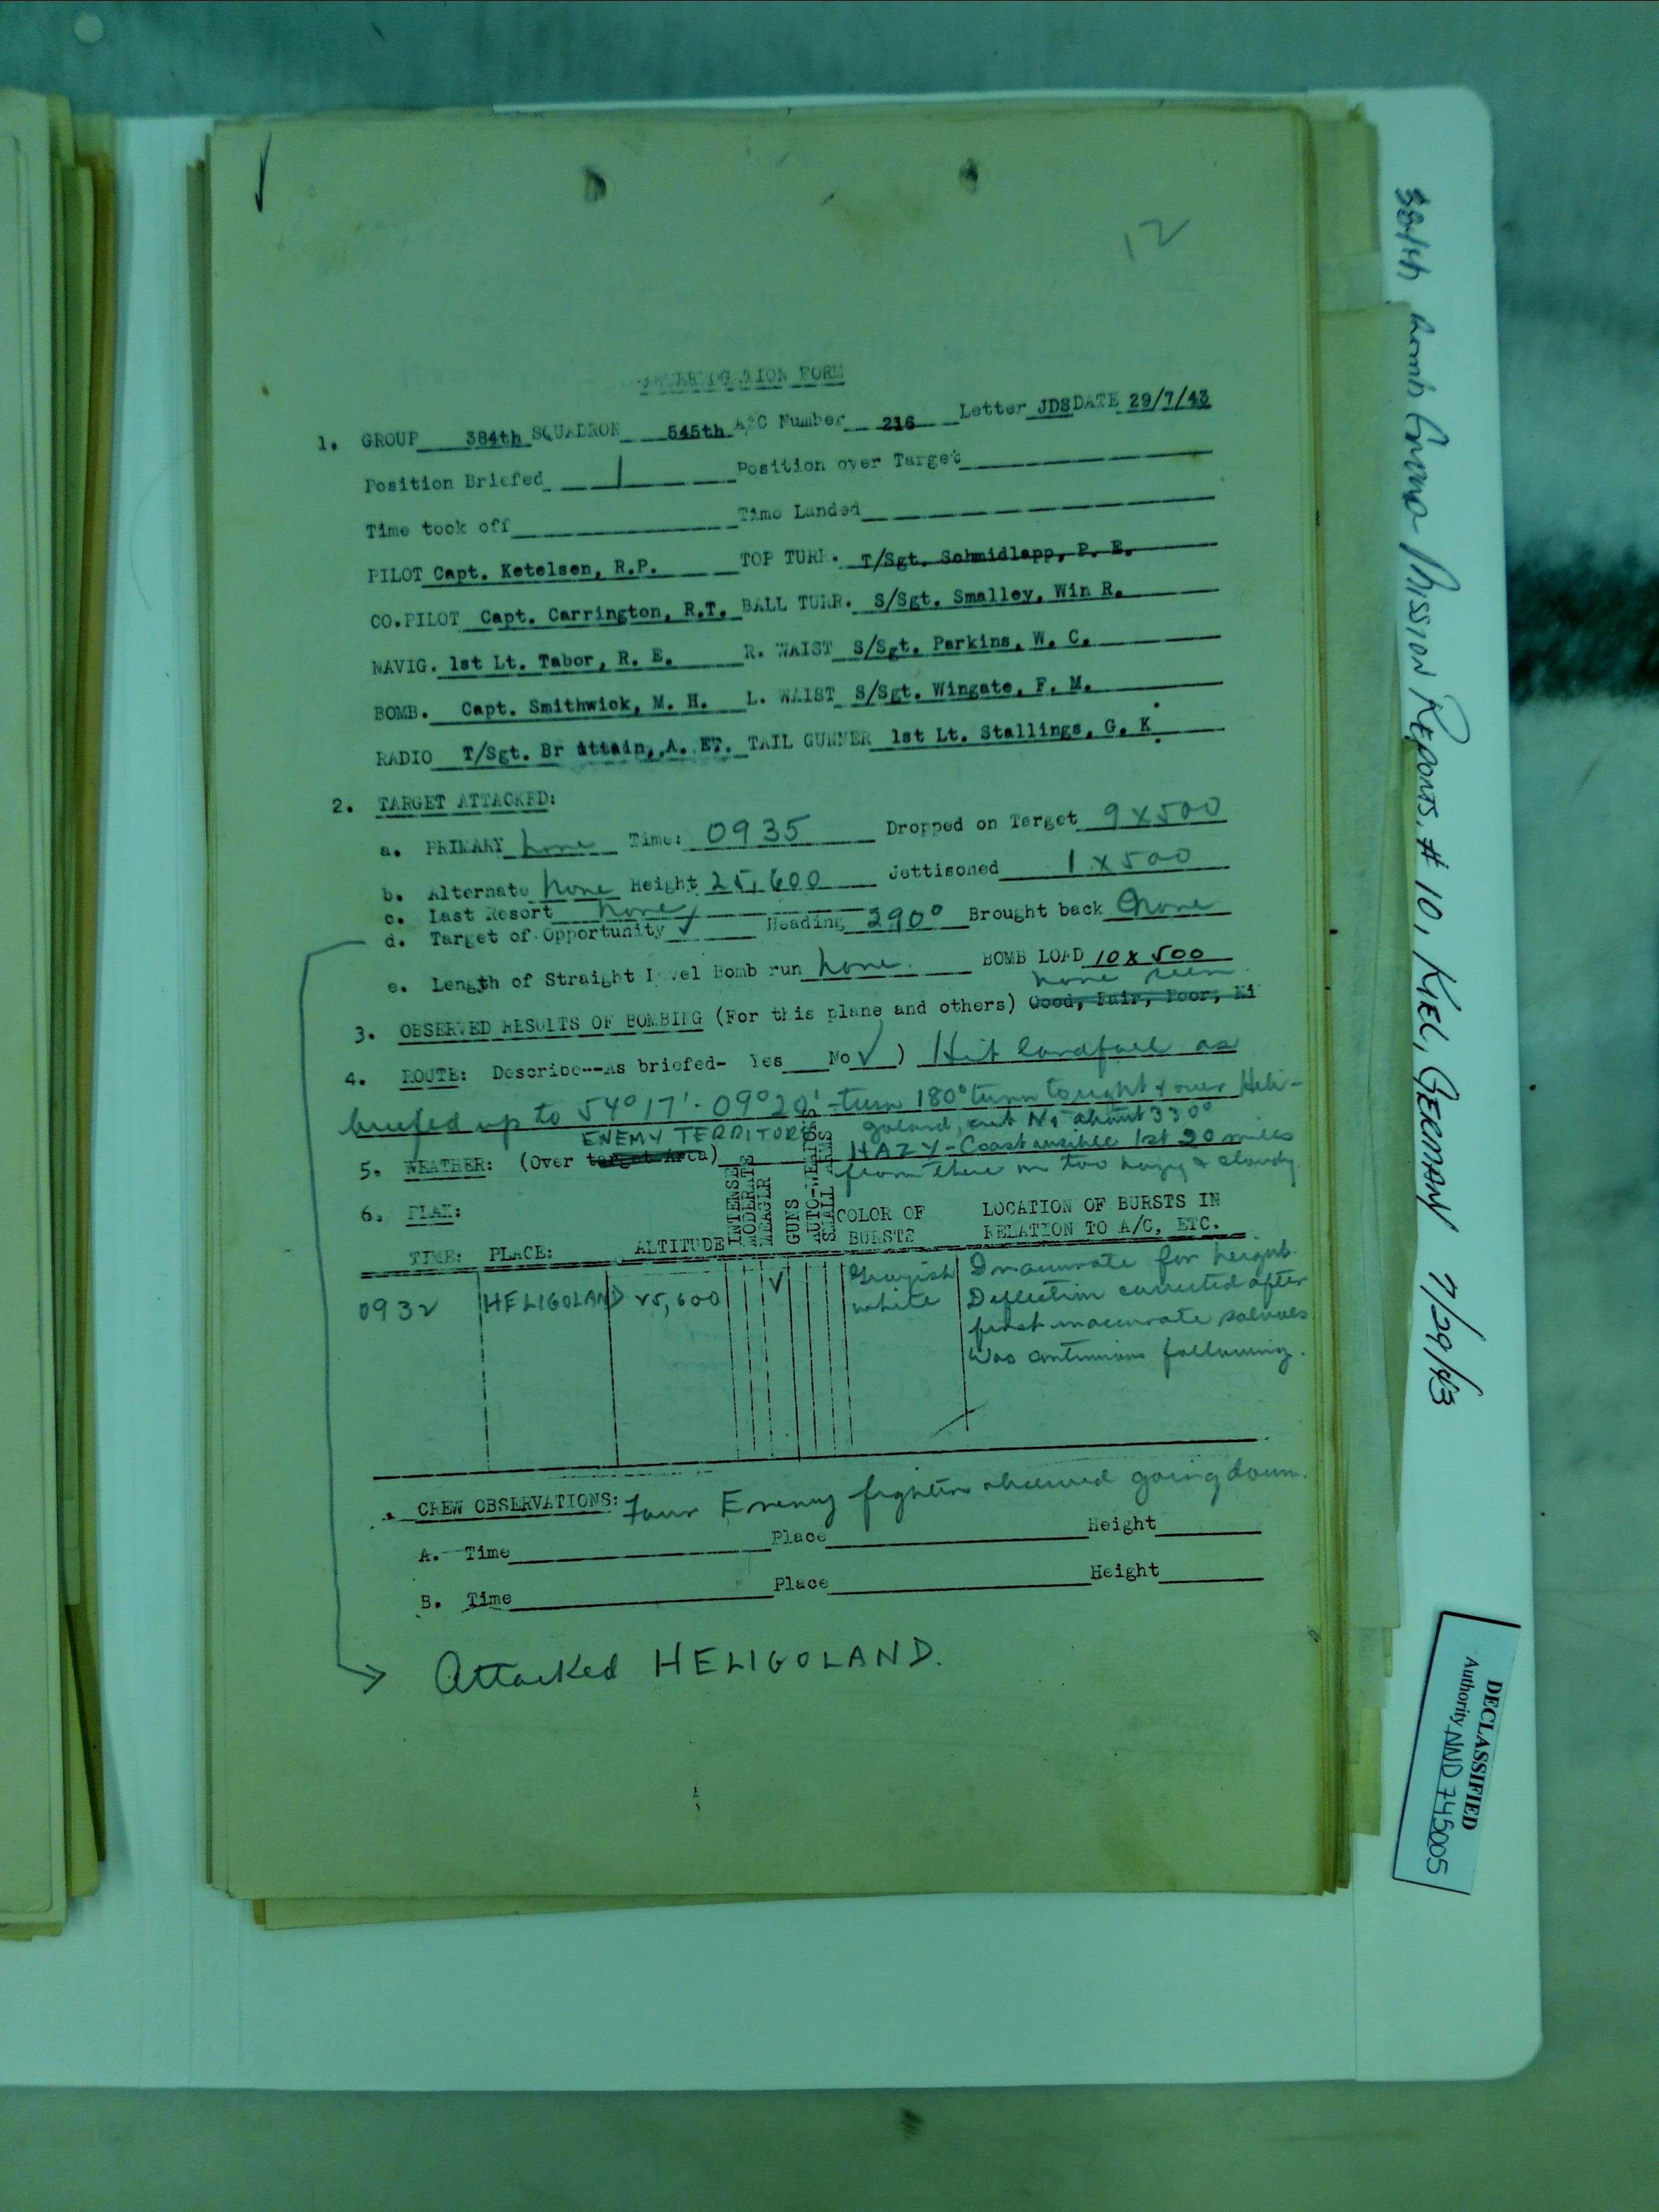 12
INTERROGATION FORM
1. GROUP 384th SQUADRON 545th A/C Number 216 Letter JDS DATE 29/7/43
Position Briefed 1 Position over Target
Time took off Time Landed
PILOT Capt. Ketelsen, R.P. TOP TURR. T/Sgt. Schmidlapp, P. E.
CO.PILOT Capt. Carrington, R.T. BALL TURR. S/Sgt. Smalley, Win R.
NAVIG. 1st Lt. Tabor, R. E. R. WAIST S/Sgt. Perkins, W. C.
BOMB. Capt. Smithwick, M. H. L. WAIST S/Sgt. Wingate, F. M.
RADIO T/Sgt. Br ittain, A. TAIL GUNNER 1st Lt. Stallings, G. K.
2. TARGET ATTACKED:
a. PRIMARY none Time: 0935 Dropped on Target 9 x 500
b. Alternate none Height 25,600 Jettisoned 1 x 500
c. Last Resort none
d. Target of Opportunity ✓ Heading 290° Brought back none
e. Length of Straight Level Bomb run none. BOMB LOAD 10 x 500
none seen
3. OBSERVED RESULTS OF BOMBING (For this plane and others) Good, Fair, Poor, Ni
4. ROUTE: Describe--As briefed- Yes No ✓ ) Hit landfall as
briefed up to 54°17'-09°20'-turn 180° turn to right & over Heli-
goland, out N. about 330°
ENEMY TERRITORY
5. WEATHER: (Over target Area) HAZY - Coast visible 1st 20 miles
from there on too hazy & cloudy.
6. FLAK:
TIME: PLACE: ALTITUDE INTENSE MODERATE MEAGER GUNS AUTO-WEAPONS SMALL ARMS COLOR OF BURSTS LOCATION OF BURSTS IN
RELATION TO A/C, ETC.
0932 HELIGOLAND 25,600 ✓ Grayish white Inaccurate for height.
Deflection corrected after
first inaccurate salvoes.
Was continuous following.
CREW OBSERVATIONS: Four Enemy fighters observed going down.
A. Time Place Height
B. Time Place Height
Attacked HELIGOLAND.
384th Bomb Group Mission Reports, # 10, KIEL, GERMANY 7/29/43
DECLASSIFIED
Authority NND 745005